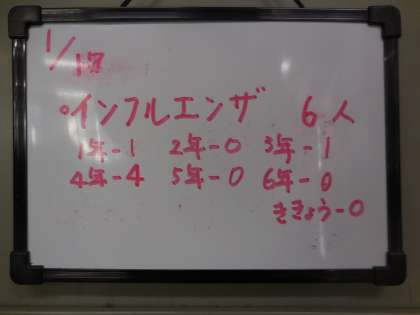 1/17
•インフルエンザ 6人
1年-1 2年-0 3年-1
4年-4 5年-0 6年-0
ききょう-0